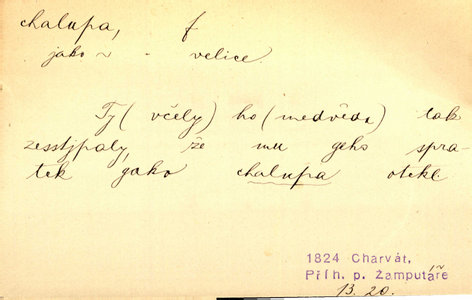 chalupa, f
jako ~ - velice
Ty (včely) ho (medvěda) tak
zesstjpaly, že mu geho spra-
tek gako chalupa otekl.
1824 Charvát,
Příh. p. Žamputáře
13. 20.